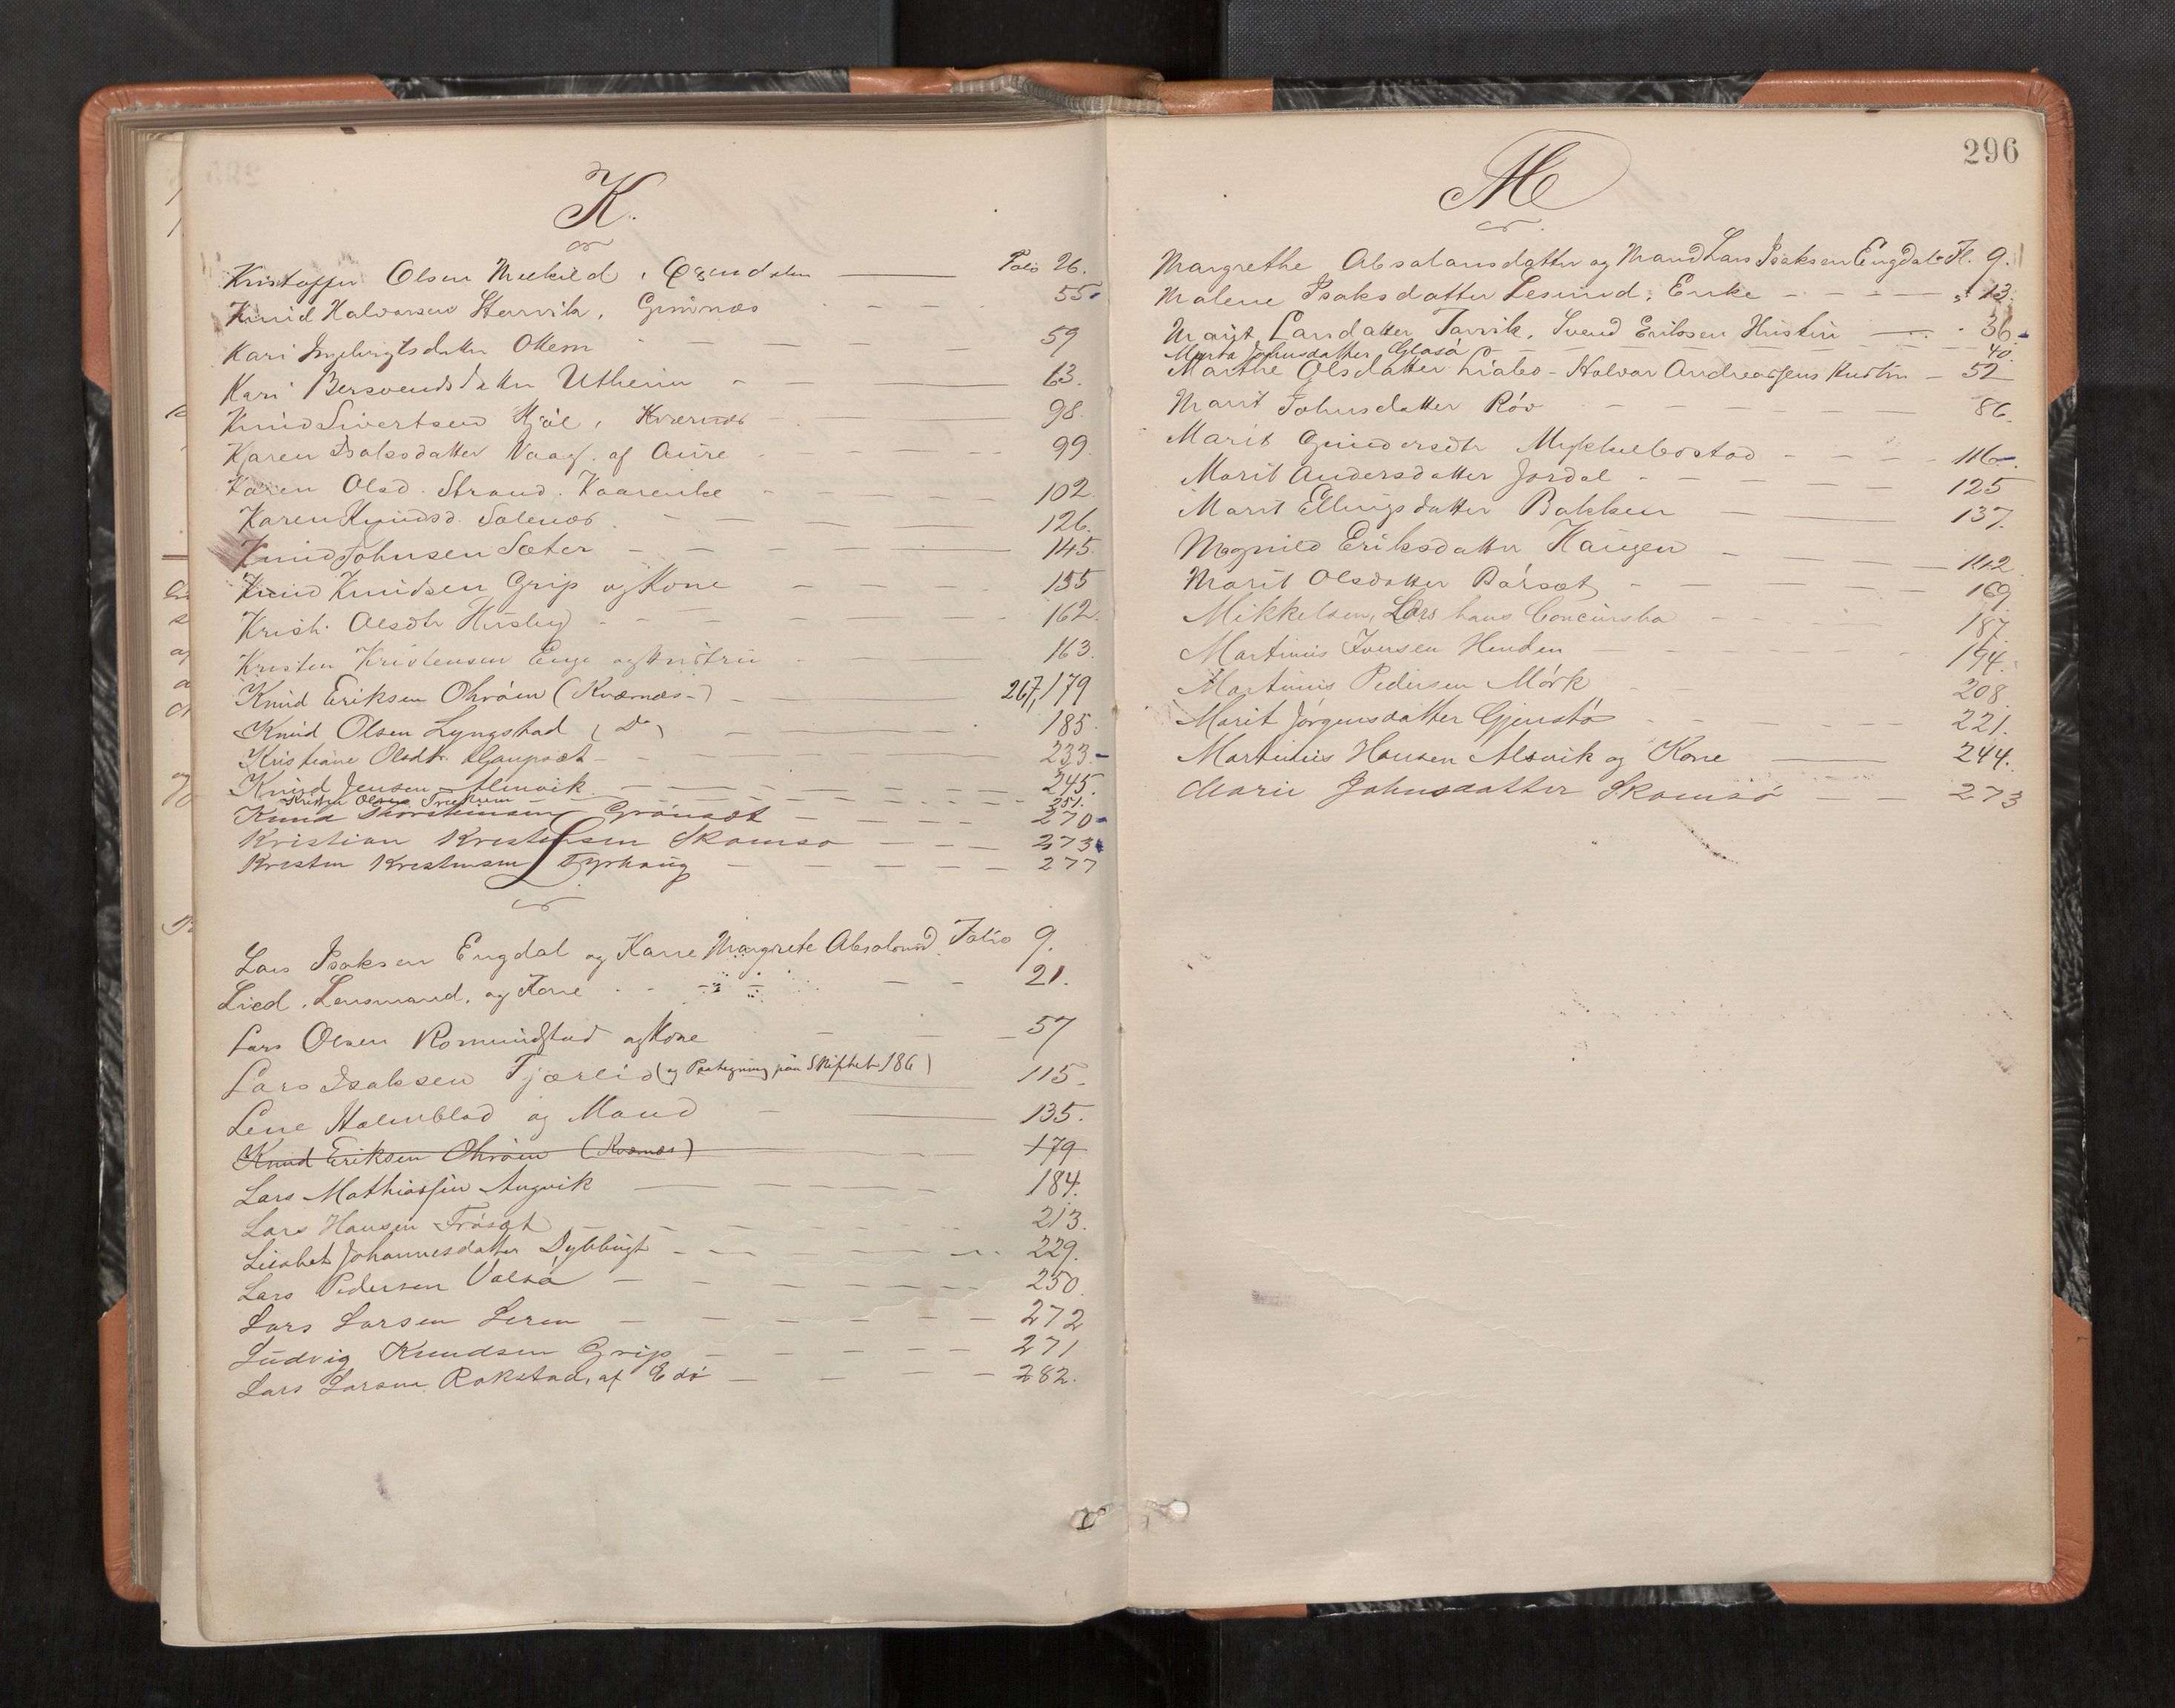 K.
Kristoffer Olsen Meekild, Øxendalen Folio 26.
Knud Halvorsen Stenvik, Grimnæs 55
Kari Ingebrigtsdatter Ottem 59
Kari Bersvendsdatter Utheim 63.
Knud Sivertsen Kjöl, Kværnæs 98.
Karen Isaksdatter Vaag. af Aure 99
Karen Olsd. Strand. 102.
Karen Knudsd. Solenæs 126.
Knud Johnsen Sæter 145.
Knud Knudsen Grip og Kone 155
Krist. Olsdtr Husby 162.
Kristen Kristensen Enge og Hustru 163.
Knud Eriksen Ohröien (Kværnæs) 267, 179
Knud Olsen Lyngstad (Do) 185.
Kristiane Olsdtr. Gaupsæt 233
Knud Jensen Almvik 245.
Kristen Olsen 251.
Knud Thorstensen Grönsæt 270
Kristian Kristensen Skomsø 273
Kresten Krestensen Tyrhaug 277
L
Lars Isaksen Engdal og Kone Margrete Absalonsd. Folio 9.
Lied, Lensmand, og Kone 21.
Lars Olsen Romundstad og Kone 57
Lars Isaksen Fjærlid (og Paategning paa Skiftet 186) 115.
Lene Holmblad og Mand 135.
Knud Eriksen Ohröien (Kværnæs) 179
Lars Mathiassen Angvik 184.
Lars Hansen Frösæt 213.
Lisabet Johannesdatter Dybbugt 229.
Lars Pedersen Valsø 250.
Lars Larsen Leren 272
Ludvig Knudsen Grip 271
Lars Larsen Rokstad, af Edö 282.
296
M
Margrethe Absalonsdatter og Mand Lars Isaksen Engdal Fl. 9.
Malene Isaksdatter Lesund, Enke 13.
Marit Larsdatter Tarvik, Svend Eriksen Hustru 36
Marta Johnsdatter Glasö 40.
Marthe Olsdatter Liabø - Halvor Andreassens Hustru 52
Marit Johnsdatter Röv 86.
Marit Gundersdtr Myklebostad 116.
Marit Andersdatter Jordal 125
Marit Ellingsdatter Bakken 137.
Magnild Eriksdatter Haugen 142
Marit Olsdatter Bársæt 169
Mikkelsen, Lars hans Concursbo 187.
Martinus Iversen Henden 194.
Martinus Pedersen Mörk 208.
Marit Jörgensdatter Gjenstö 221.
Martinus Hansen Alsvik og Kone 244.
Marie Johnsdatter Skomsö 273